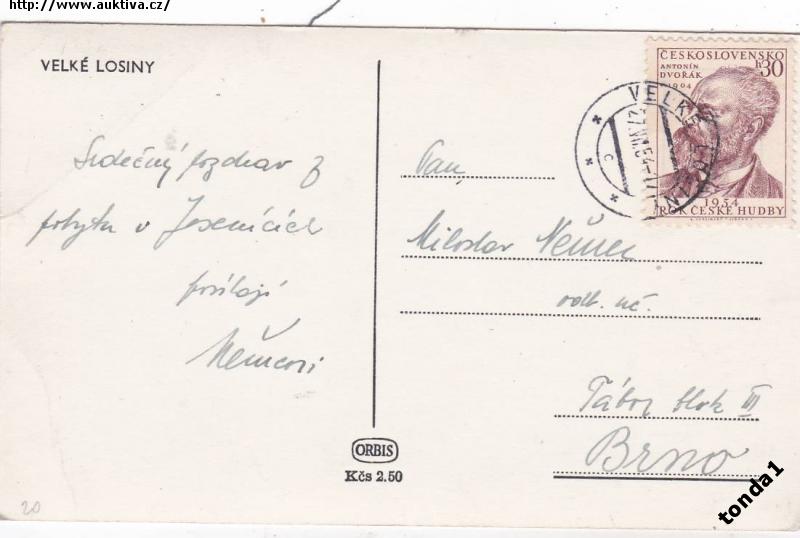 http://www.auktiva.cz/
VELKÉ LOSINY
Srdečný pozdrav z
pobytu v Jeseníkách
posílají
Němcovi
ORBIS
Kčs 2.50
20
ČESKOSLOVENSKO
ANTONÍN
DVOŘÁK
1904
h30
1954
ROK ČESKÉ HUDBY
VELKÉ LOSINY
C
Pan,
Miloslav Němec
odb. uč.
Tábor blok III
Brno
tonda1